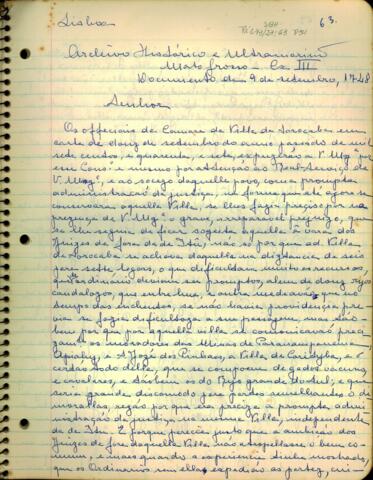 Lisboa
63.
Archivo Histórico e Ultramarino
Mato Grosso - Cx. III
Documento de 9 de setembro, 1748
Senhor
Os officiaes da Camara da Villa de Sorocaba em
carta de doze de setembro do anno passado de mil
sete centos, e quarenta, e sete, expuzerão a V. Mgᵉ por
esse Cons.º o mesmo por attenção ao Real-Serviço de
V. Mgᵉ, e ao socego daquelle povo, com a prompta
administração da justiça, na forma que até agora se
conservara aquella Villa, se lhes fazia preciso por na
prezença de V. Mgᵉ o grave, e irreparavel prejuizo, que
de lhe seguia de ficar sogeita aquella a vara dos
Juizes de fora da de Itú, não só por que a d. Villa
de Sorocaba se achava daquella na distancia de seis
para sette legoas, o que dificultam muito os recursos,
que ordinario deviam ser promptos, alem de dous rijos
caudalozos, que entre huma, e outra mediavam, e no
tempo das inundações, se não havia providencia previa
se fazia dificultoza a sua passagem, mas tam
bem por que por aquella villa se comunicavão preci
zamᵗᵉ os moradores das Minas de Paranampanema
Apiahy, e A Fazᵃ dos Pinhaes, a Villa de Coritÿba, e
certão todo della, que se compoem de gados vacuns,
e cavalares, e tãobem os do Rijo grande do Sul; e que
seria grande discomodo para varões semelhantes o de
moralhas, razão por que era preciza a prompta admi
nistração da justiça na mesma Villa, independente
da de Itú. E porque parecia justo que a ambição dos
Juizes de fora daquella Villa não atropellasse o bem co
mum, e mais quando a experiência tinha mostrado,
que os Ordinarios com ellas expedião as partes, cri-